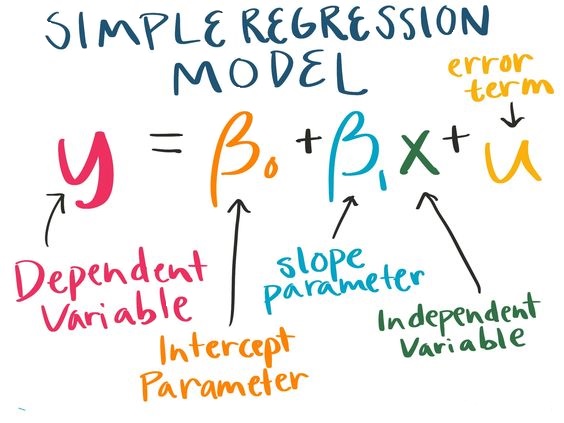 SIMPLE REGRESSION
MODEL
error
term
y = β₀ + β₁ x + u
Dependent
Variable
Intercept
Parameter
slope
parameter
Independent
Variable